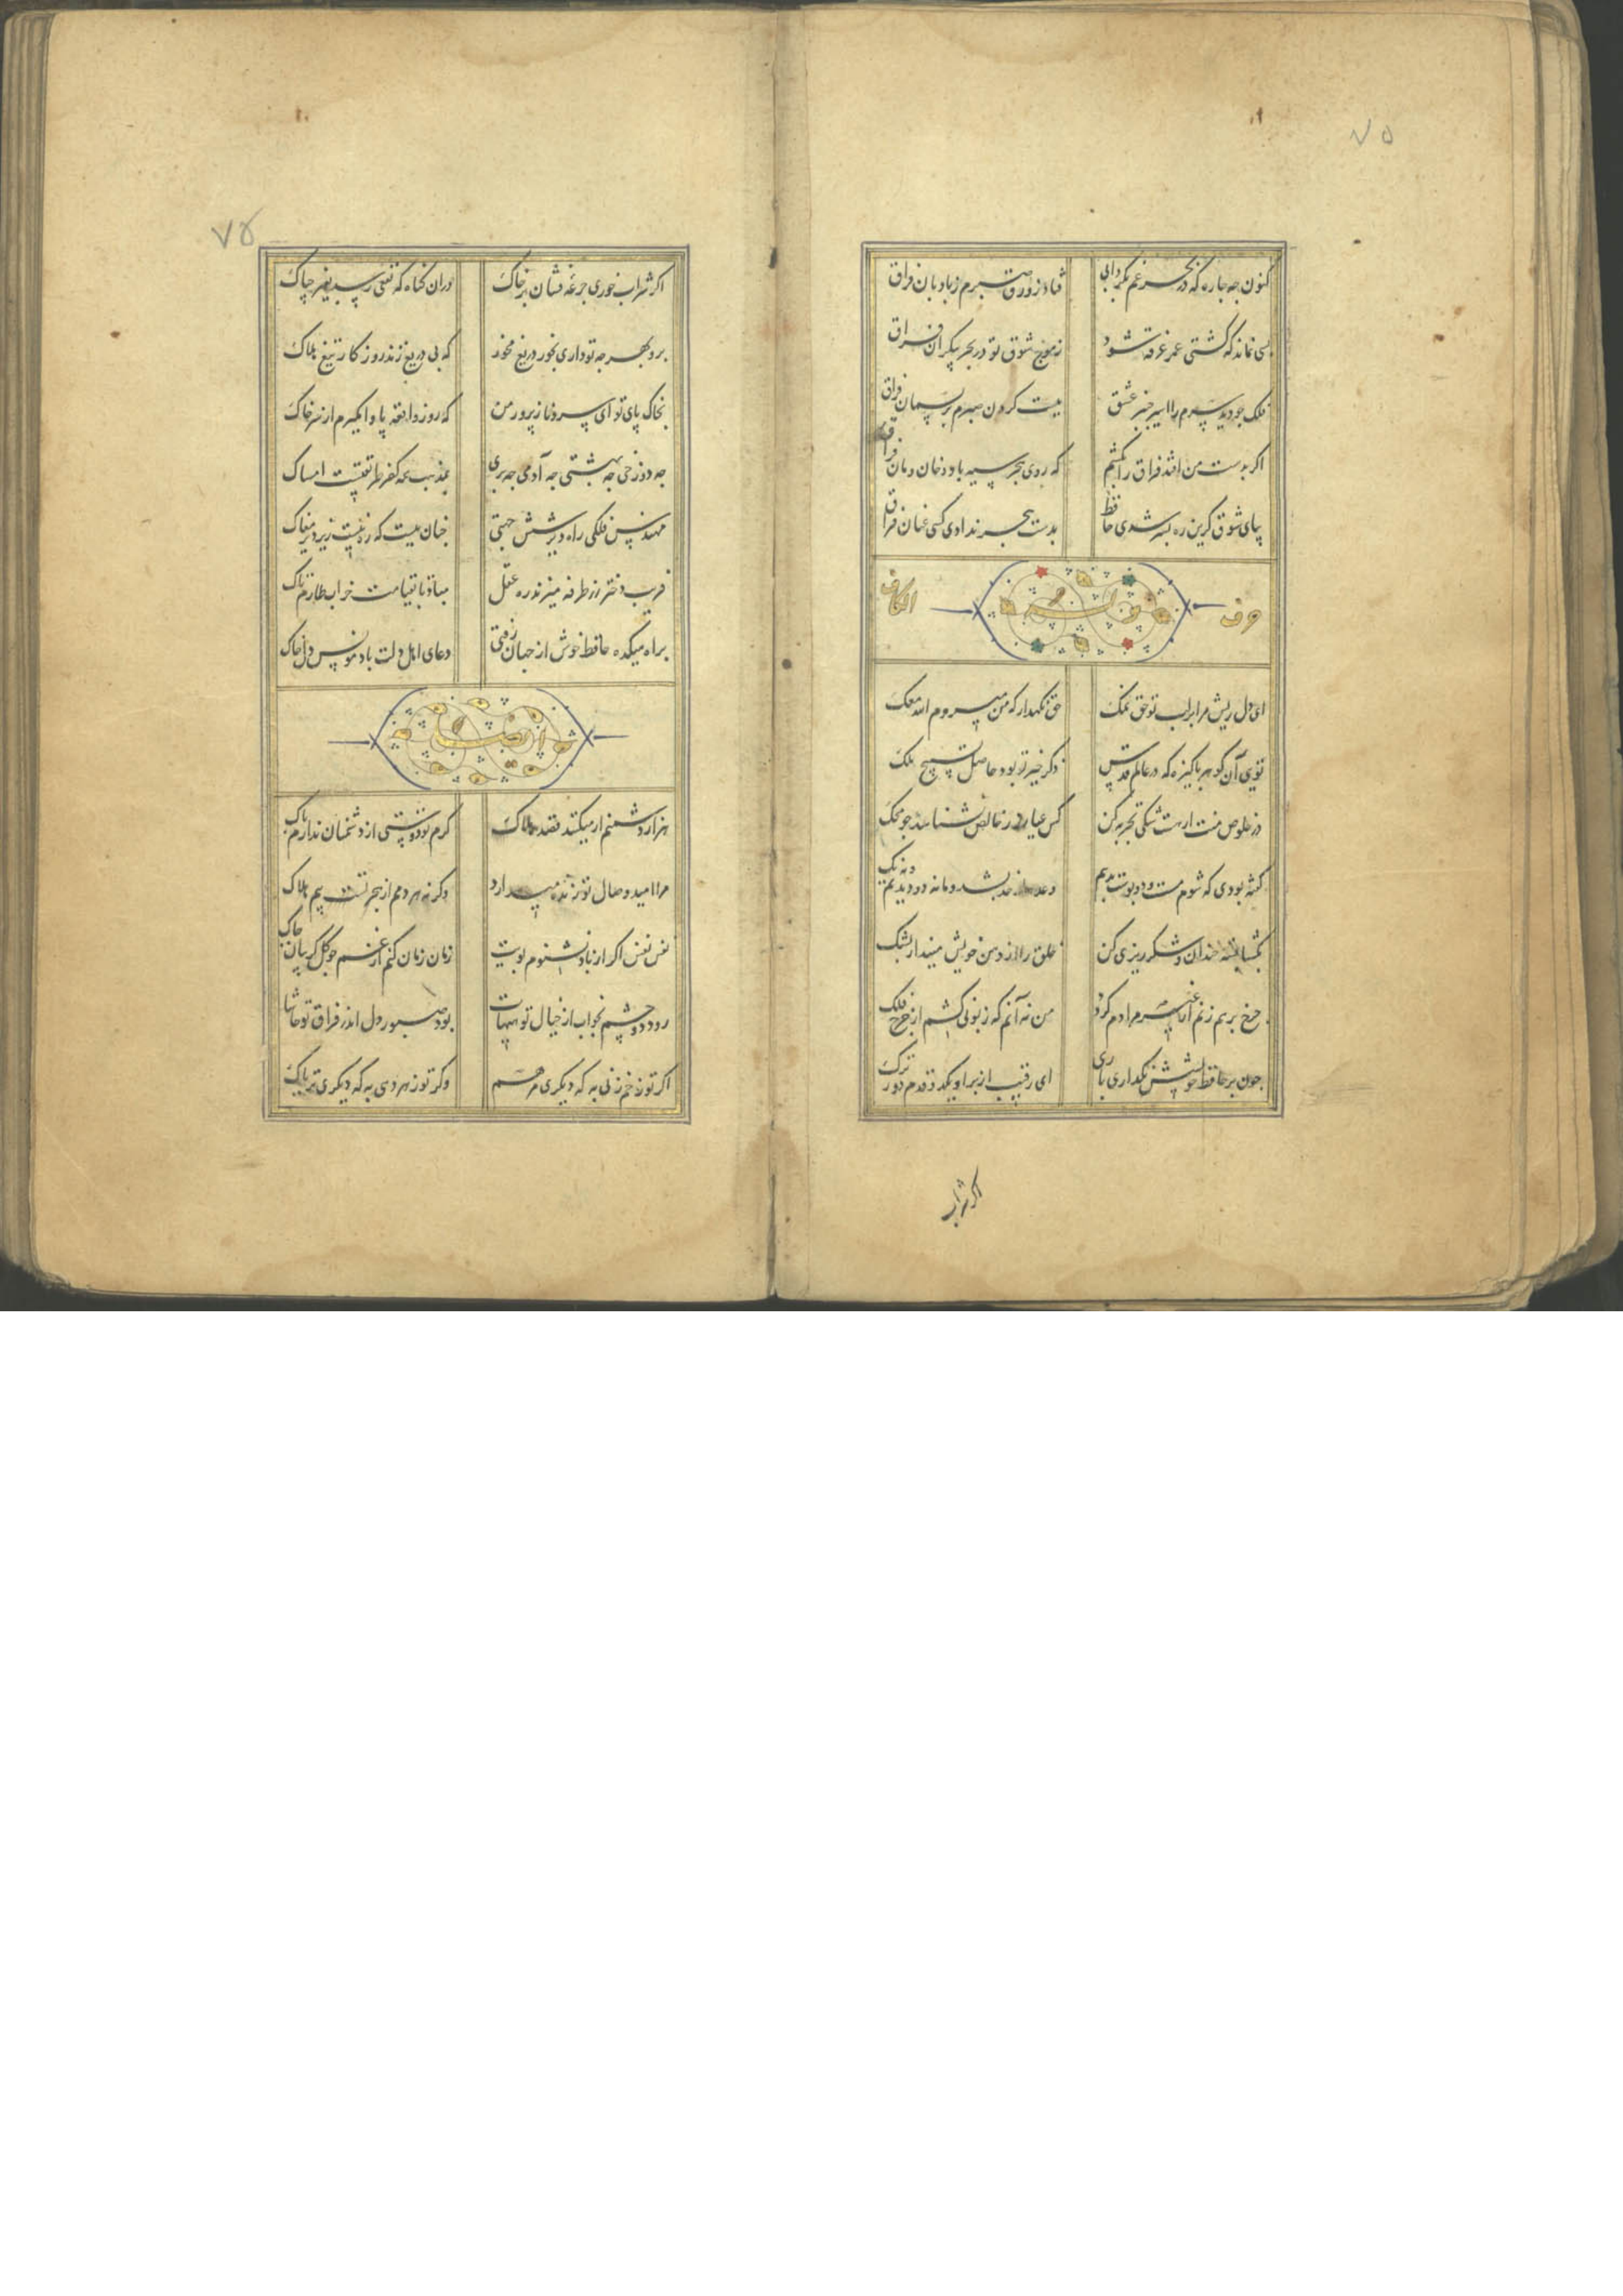 ۷۵
کنون چه چاره که در بحر غم بگردابی
فتاد زورق صبرم ز بادبان فراق
بسی نماند که کشتی عمر غرقه شود
ز موج شوق تو در بحر بیکران فراق
فلک چو دید سرم را اسیر چنبر عشق
ببست گردن صبرم بریسمان فراق
اگر بدست من افتد فراق را بکشم
که روی هجر سیه باد و خان و مان فراق
بپای شوق گرین ره بسر شدی حافظ
بدست هجر ندادی کسی عنان فراق
حرف
الکاف
ای دل ریش مرا بر لب تو حق نمک
حق نگهدار که من میروم الله معک
تویی آن گوهر پاکیزه که در عالم قدس
ذکر خیر تو بود حاصل تسبیح ملک
در خلوص منت ار هست شکی تجربه کن
کس عیار زر خالص نشناسد چو محک
گفته بودی که شوم مست و دو بوست بدهم
وعده از حد بشد و ما نه دو دیدیم و نه یک
بگشا پسته خندان و شکر ریزی کن
خلق را از دهن خویش مینداز بشک
چرخ برهم زنم ار غیر مرادم گردد
من نه آنم که زبونی کشم از چرخ فلک
چون بر حافظ خویشش نگذاری باری
ای رقیب از بر او یکدو قدم دورترک
اگر شراب
۷۵
اگر شراب خوری جرعه فشان بر خاک
دران گناه که نفعی رسد بغیر چه باک
برو بهر چه تو داری بخور دریغ مخور
که بی دریغ زند روزگار تیغ هلاک
بخاک پای تو ای سرو ناز پرور من
که روز واقعه پا وامگیرم از سر خاک
چه دوزخی چه بهشتی چه آدمی چه پری
بمذهب همه کفر طریقتست امساک
مهندس فلکی راه دیر شش جهتی
چنان ببست که ره نیست زیر دیر مغاک
فریب دختر رز طرفه میزند ره عقل
مباد تا بقیامت خراب طارم تاک
براه میکده حافظ خوش از جهان رفتی
دعای اهل دلت باد مونس دل پاک
هزار دشمنم ار میکنند قصد هلاک
گرم تو دوستی از دشمنان ندارم باک
مرا امید وصال تو زنده میدارد
وگرنه هر دمم از هجر تست بیم هلاک
نفس نفس اگر از باد نشنوم بویت
زمان زمان کنم از غم چو گل گریبان چاک
رود دو چشم بخواب از خیال تو هیهات
بود صبور دل اندر فراق تو حاشا
اگر تو زخم زنی به که دیگری مرهم
وگر تو زهر دهی به که دیگری تریاک